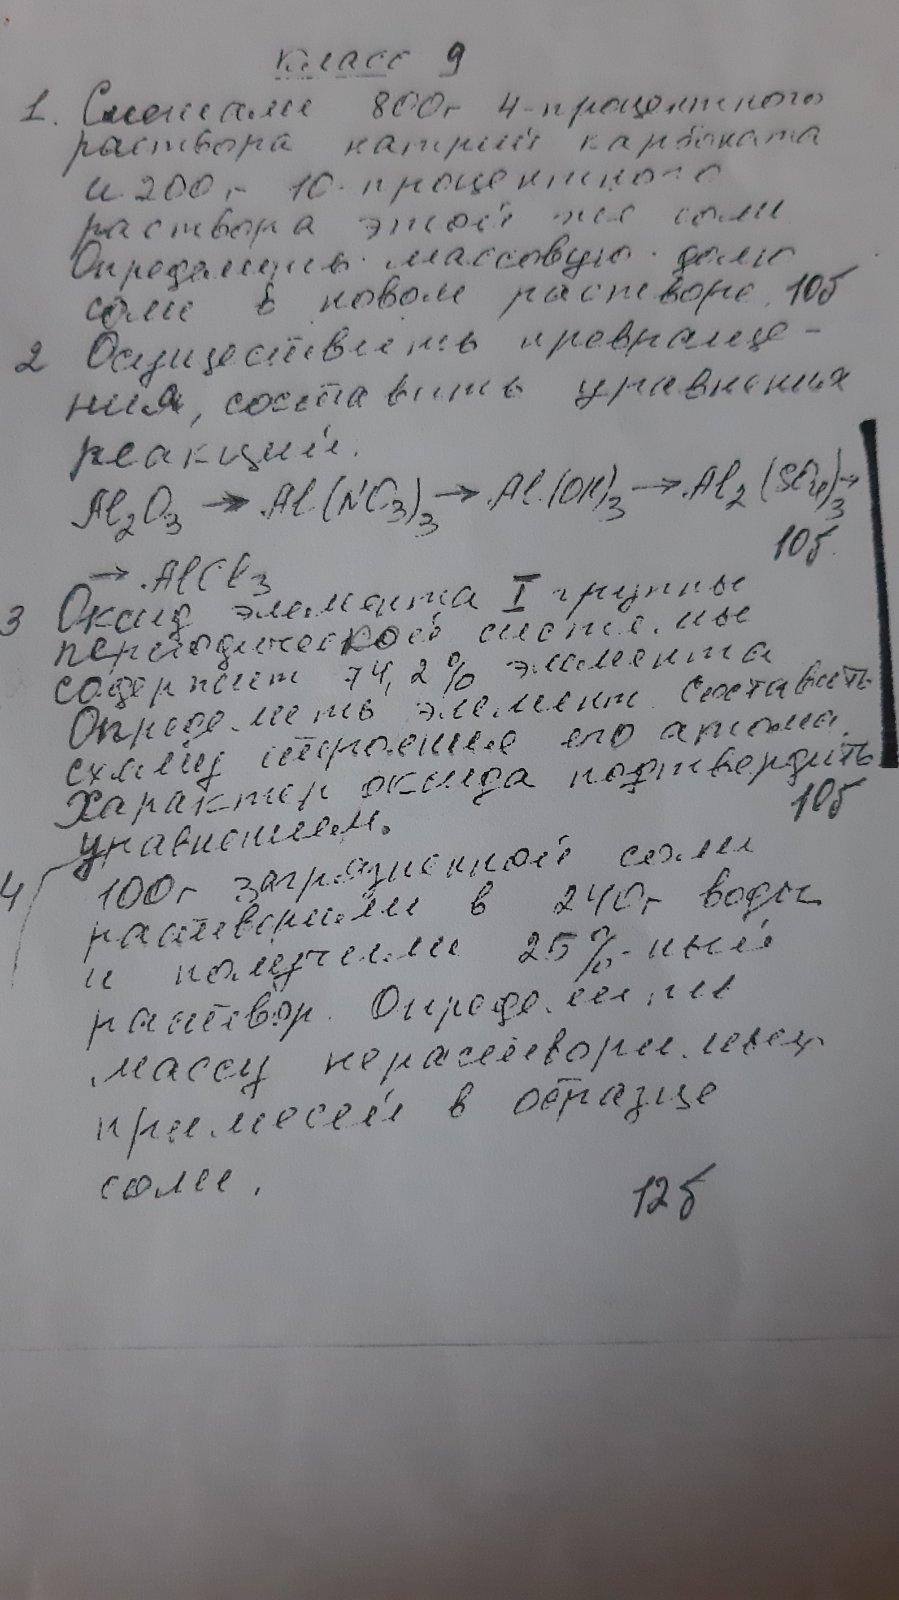 Класс 9
1. Смешали 800г 4-процентного
раствора натрий карбоната
и 200г 10-процентного
раствора этой же соли
Определить массовую долю
соли в новом растворе. 10б
2 Осуществить превраще-
ния, составить уравнения
реакций.
Al₂O₃ → Al(NO₃)₃ → Al(OH)₃ → Al₂(SO₄)₃ →
→ AlCl₃ 10б.
3 Оксид элемента I группы
периодической системы
содержит 74,2% элемента
Определить элемент. Составить
схему строения его атома.
Характер оксида подтвердить
уравнением. 10б
4 100г загрязненной соли
растворили в 240г воды
и получили 25%-ный
раствор. Определили
массу нерастворимых
примесей в образце
соли. 12б